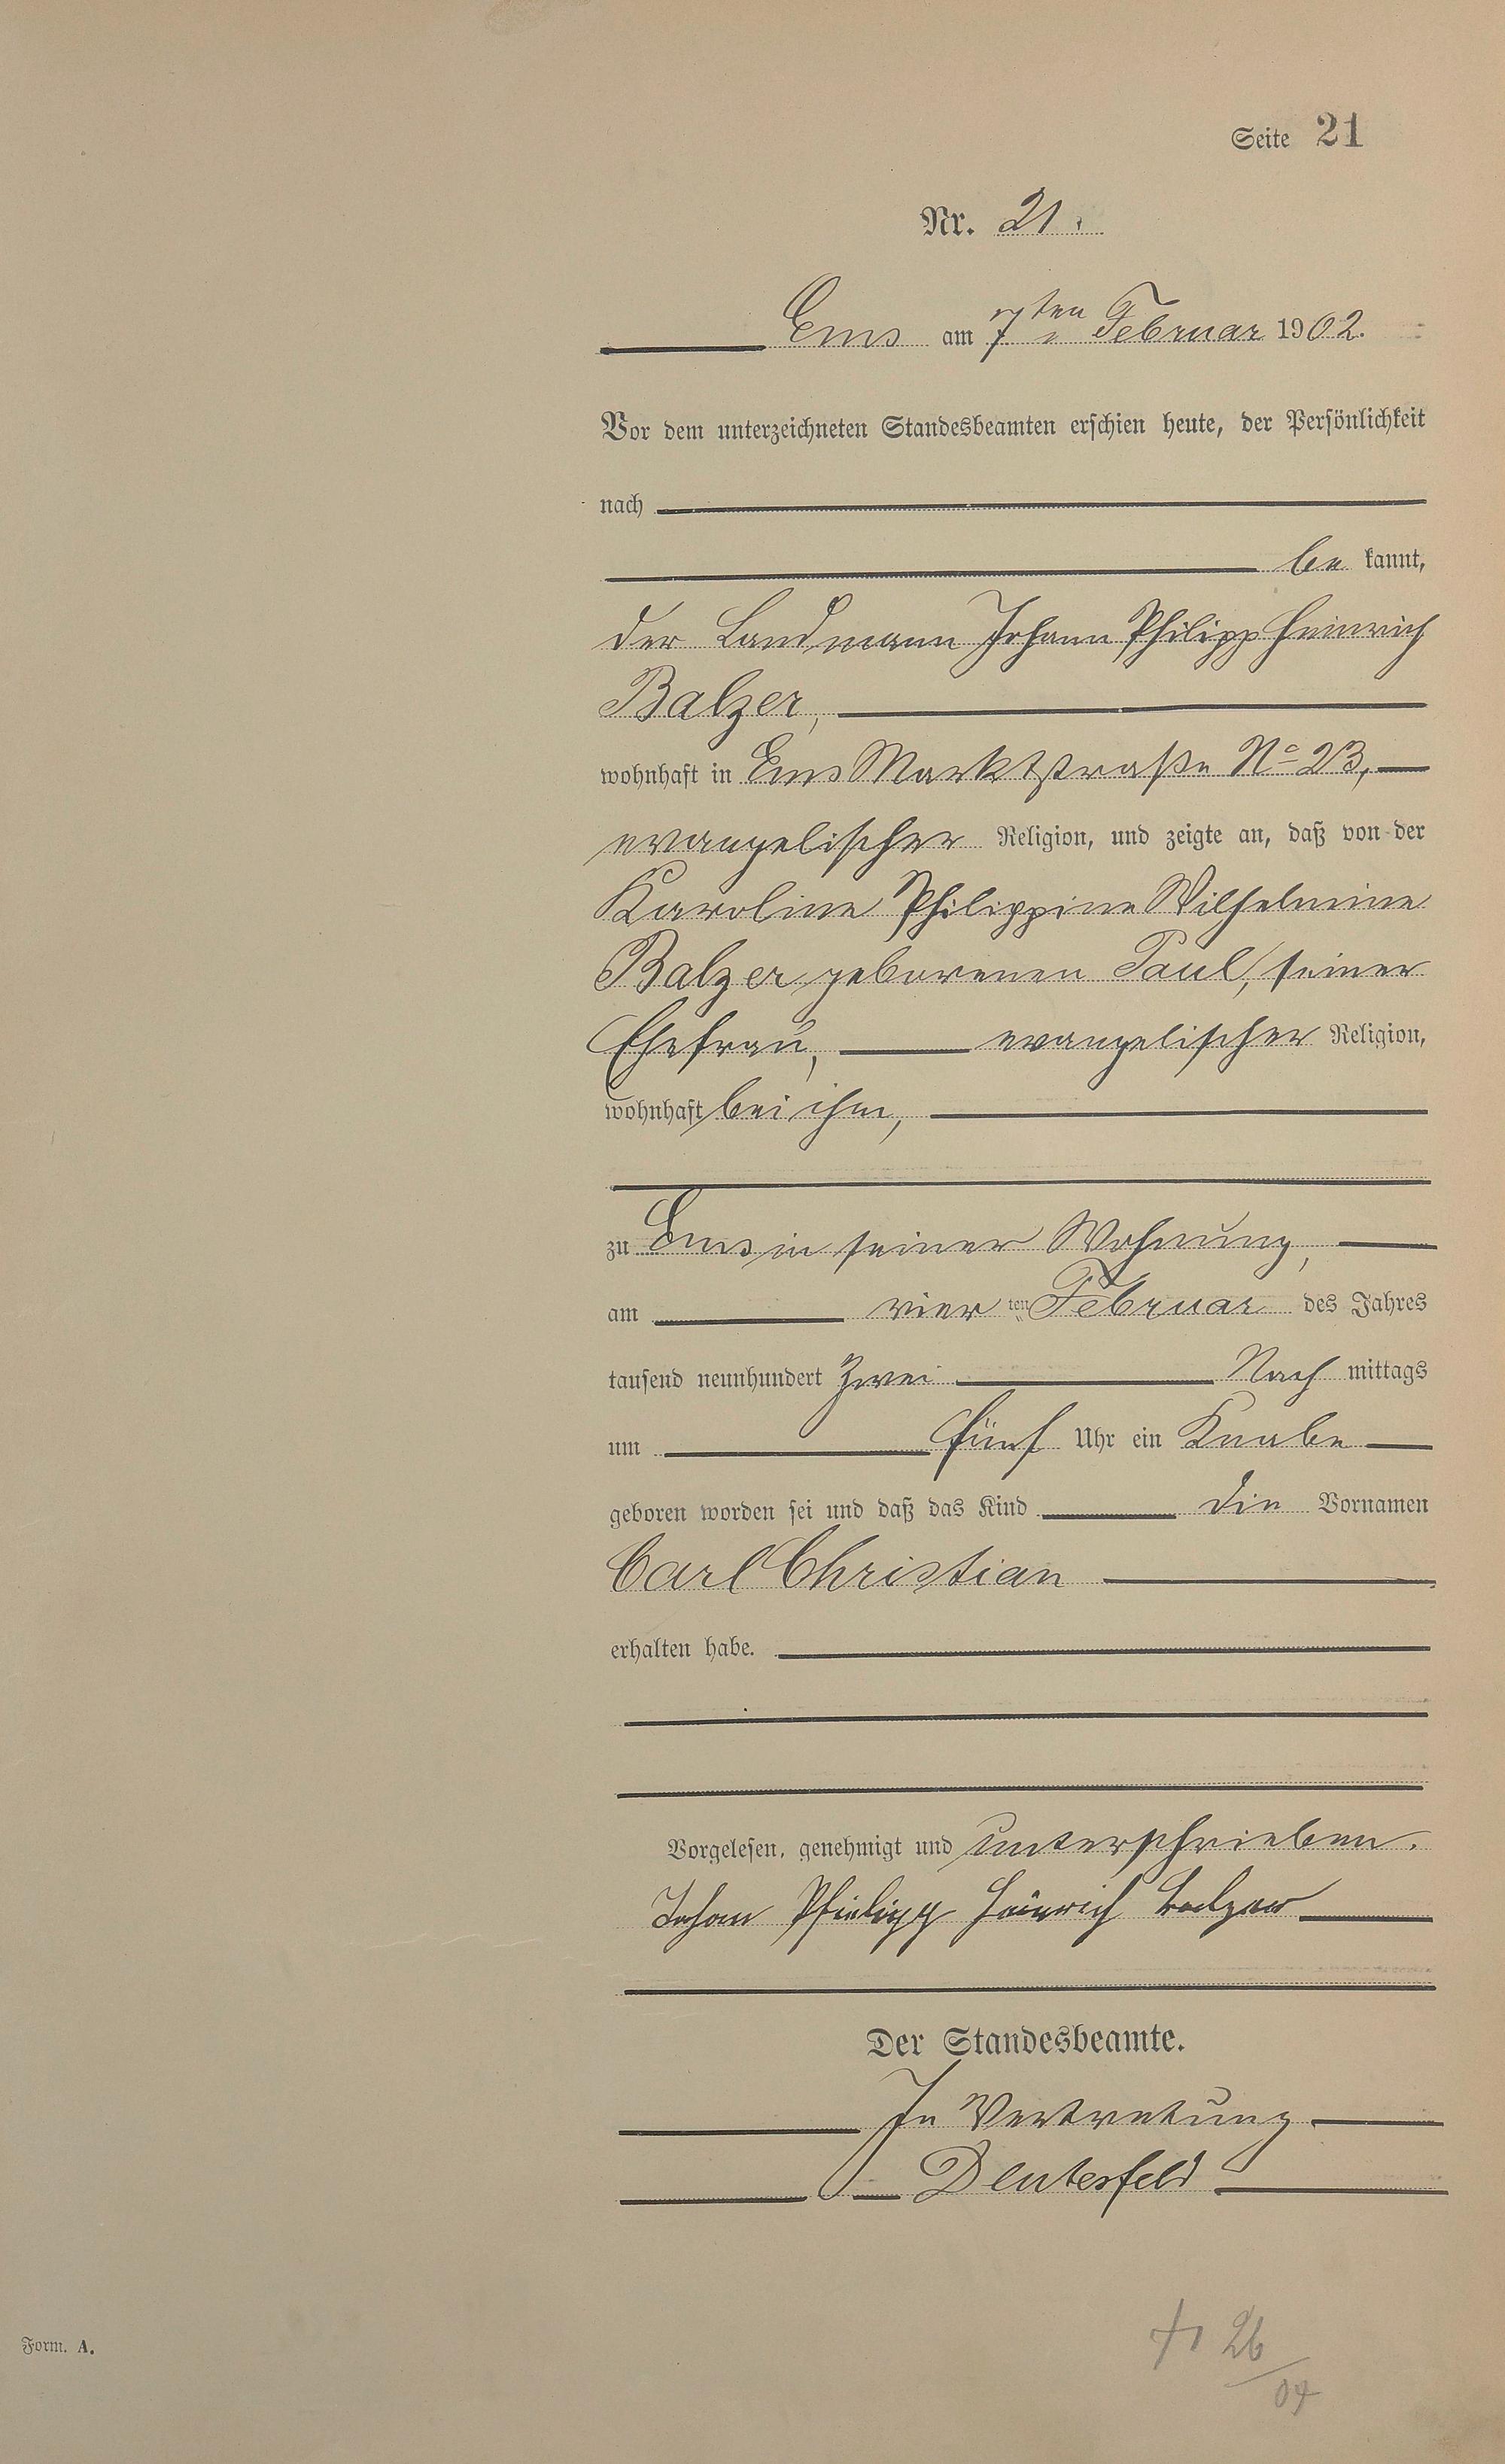 Seite 21
Nr. 21.
Ems am 7ten Februar 1902.
Vor dem unterzeichneten Standesbeamten erschien heute, der Persönlichkeit
nach
be kannt,
der Landmann Johann Philipp Heinrich
Balzer,
wohnhaft in Ems Marktstraße No 23,
evangelischer Religion, und zeigte an, daß von der
Karoline Philippine Wilhelmine
Balzer geborenen Paul, seiner
Ehefrau, evangelischer Religion,
wohnhaft bei ihm,
zu Ems in seiner Wohnung,
am vier ten Februar des Jahres
tausend neunhundert zwei Nach mittags
um fünf Uhr ein Knabe
geboren worden sei und daß das Kind die Vornamen
Carl Christian
erhalten habe.
Vorgelesen, genehmigt und unterschrieben.
Johann Philipp Heinrich Balzer
Der Standesbeamte.
In Vertretung
Form. A.
26